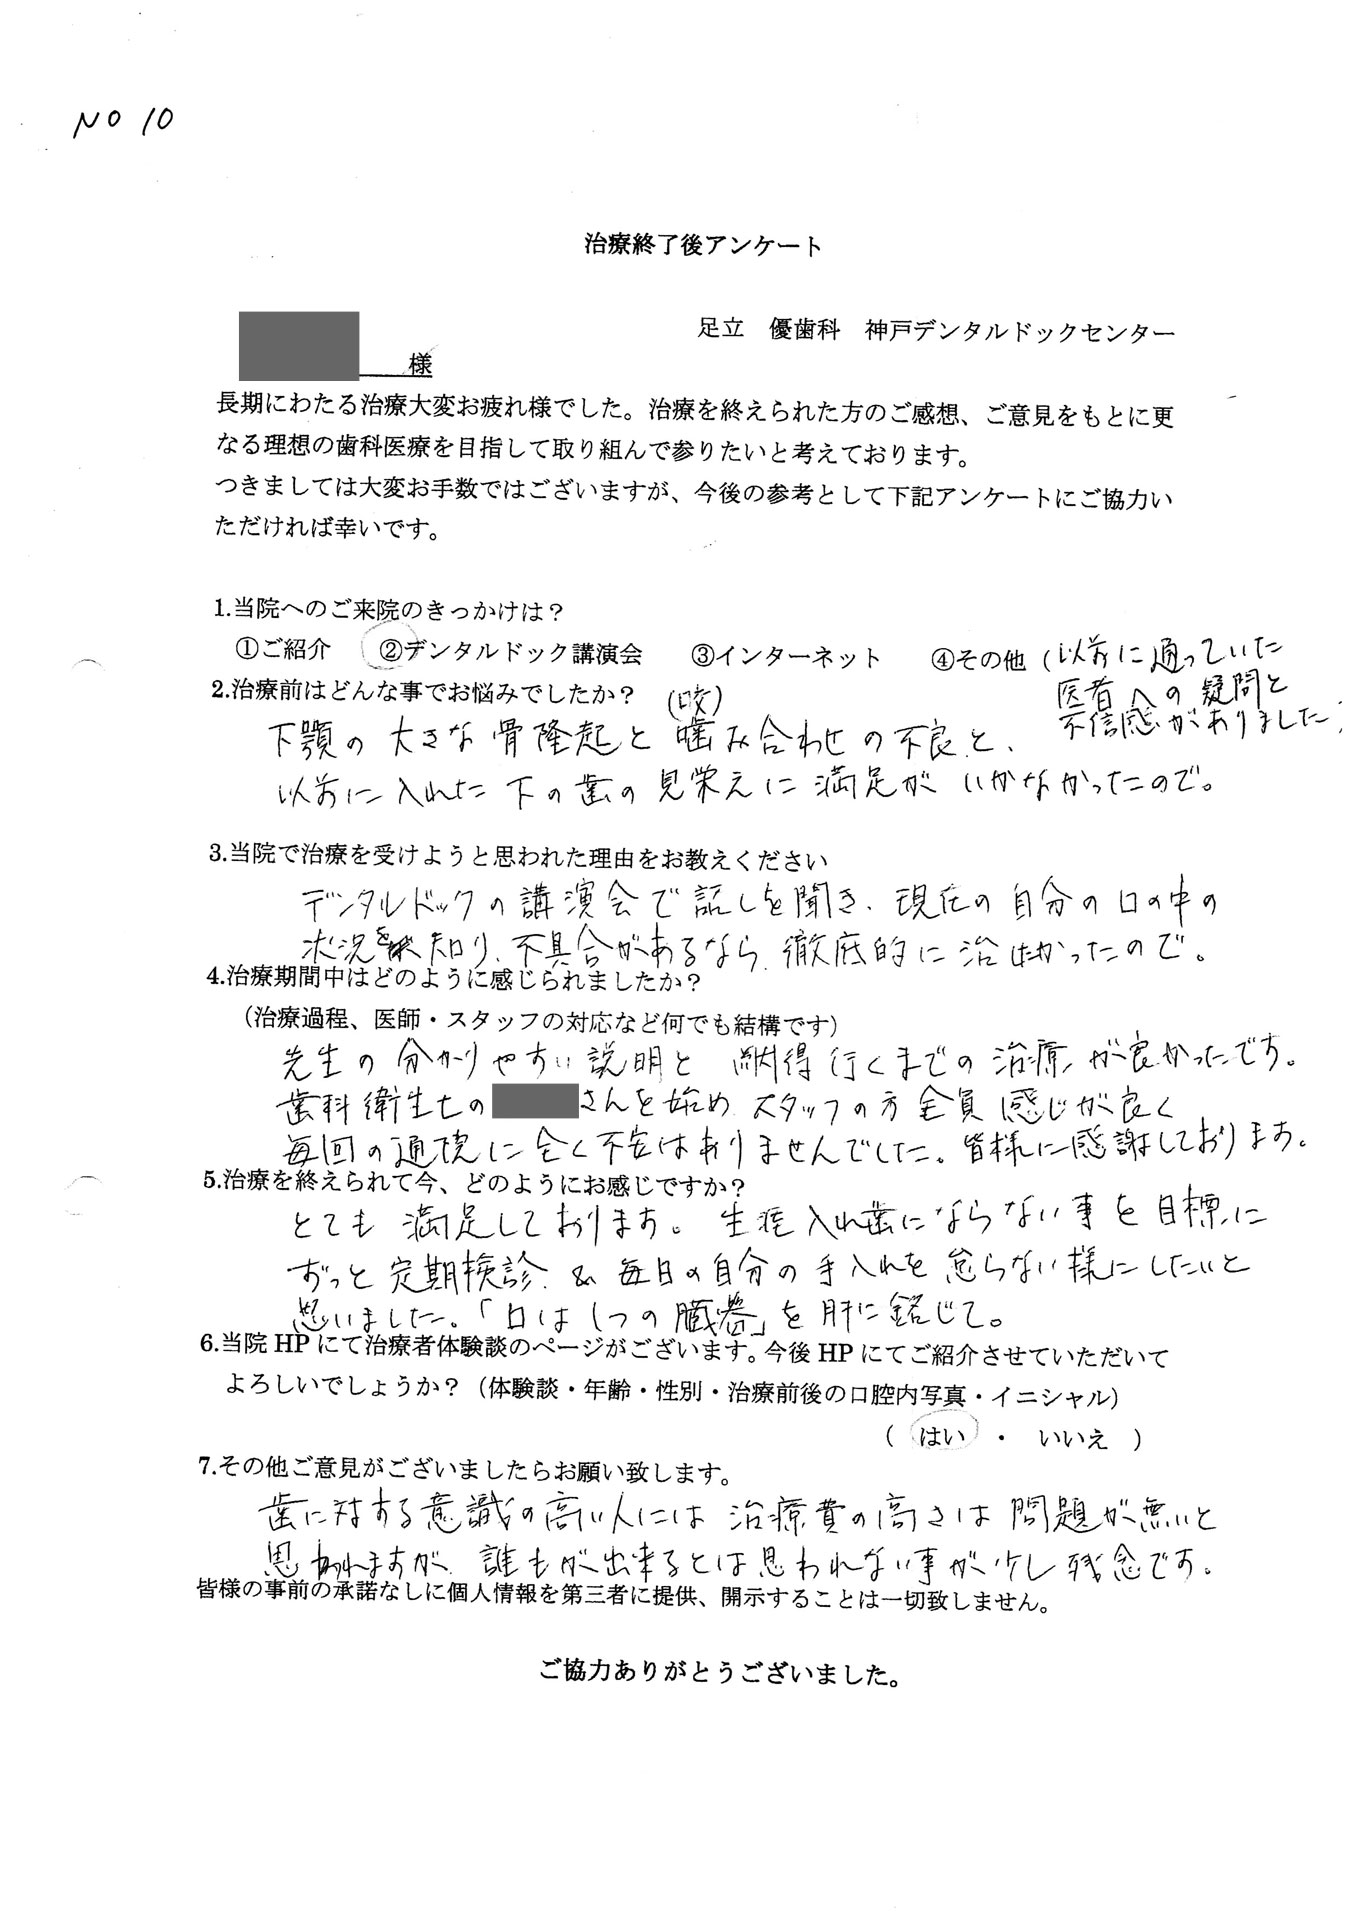 NO 10
治療終了後アンケート
足立 優歯科 神戸デンタルドックセンター
様
長期にわたる治療大変お疲れ様でした。治療を終えられた方のご感想、ご意見をもとに更
なる理想の歯科医療を目指して取り組んで参りたいと考えております。
つきましては大変お手数ではございますが、今後の参考として下記アンケートにご協力い
ただければ幸いです。
1.当院へのご来院のきっかけは?
①ご紹介 ②デンタルドック講演会 ③インターネット ④その他(以前に通っていた
医者への疑問と
不信感がありました
2.治療前はどんな事でお悩みでしたか?
(咬)
下顎の大きな骨隆起と噛み合わせの不良と、
以前に入れた下の歯の見栄えに満足がいかなかったので。
3.当院で治療を受けようと思われた理由をお教えください
デンタルドックの講演会で話しを聞き、現在の自分の口の中の
状況を知り、不具合があるなら、徹底的に治したかったので。
4.治療期間中はどのように感じられましたか?
(治療過程、医師・スタッフの対応など何でも結構です)
先生の分かりやすい説明と納得行くまでの治療が良かったです。
歯科衛生士の さんを始めスタッフの方全員感じが良く
毎回の通院に全く不安はありませんでした。皆様に感謝しております。
5.治療を終えられて今、どのようにお感じですか?
とても満足しております。生涯入れ歯にならない事を目標に
ずっと定期検診&毎日の自分の手入れを怠らない様にしたいと
思いました。「口は1つの臓器」を肝に銘じて。
6.当院 HP にて治療者体験談のページがございます。今後 HP にてご紹介させていただいて
よろしいでしょうか?(体験談・年齢・性別・治療前後の口腔内写真・イニシャル)
( はい ・ いいえ )
7.その他ご意見がございましたらお願い致します。
歯に対する意識の高い人には治療費の高さは問題が無いと
思われますが、誰もが出来るとは思われない事が少し残念です。
皆様の事前の承諾なしに個人情報を第三者に提供、開示することは一切致しません。
ご協力ありがとうございました。